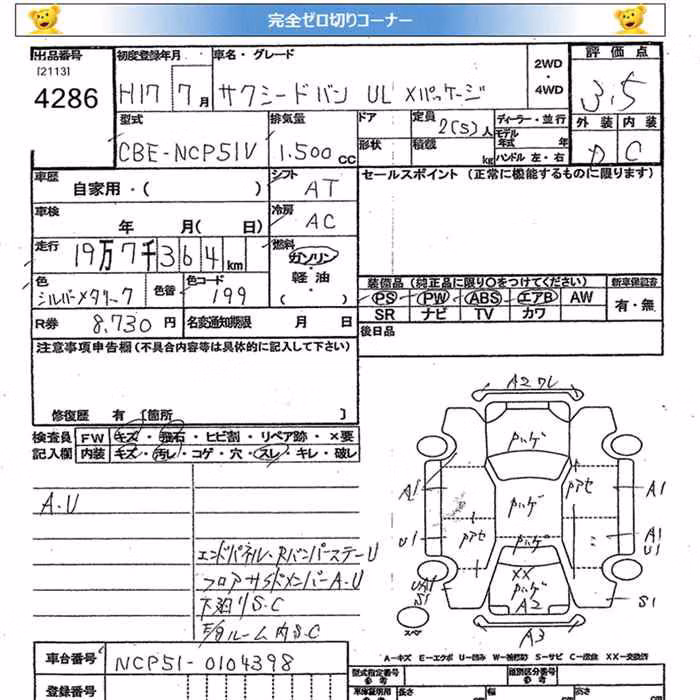 完全ゼロ切りコーナー
出品番号 初度登録年月 車名・グレード 2WD・4WD 評価点
[2113]
4286 H17 7月 サクシードバン UL Xパッケージ 3.5
型式 排気量 ドア 定員 2(5)人 ディーラー・並行 外装 内装
CBE-NCP51V 1.500cc 形状 積載 kg モデル年式 年 D C
ハンドル 左・右
車歴 自家用・( ) シフト AT セールスポイント (正常に機能するものに限ります)
車検 年 月( 日) 冷房 AC
走行 19万7千364km 燃料 ガソリン・軽油・( )
色 シルバーメタリック 色替 色コード 199 装備品 (純正品に限り○をつけてください) 新車保証書
PS PW ABS エアB AW 有・無
SR ナビ TV カワ
R券 8,730円 名変通知期限 月 日 後日品
注意事項申告欄 (不具合内容等は具体的に記入して下さい)
修復歴 有 [箇所 ]
検査員 FW キズ・飛石・ヒビ割・リペア跡・×要
記入欄 内装 キズ・汚し・コゲ・穴・スレ・キレ・破レ
A.U
エンドパネル・RバンパーステーU
フロアサイドメンバーA.U
下廻りS.C
E/gルーム内S.C
A2ワレ
Pハゲ
A1 Pハゲ Pアセ A1
U1 Pアセ Pハゲ = A1
U1
UA1 XX
S1 Pハゲ S1
A2
スペア A3
A-キズ E-エクボ U-凹み W-補修跡 S-サビ C-腐蝕 XX-交換済
車台番号 NCP51-0104398
登録番号
型式指定番号 参考 類別区分番号 参考
車庫証明用 参考 長さ 幅 高さ